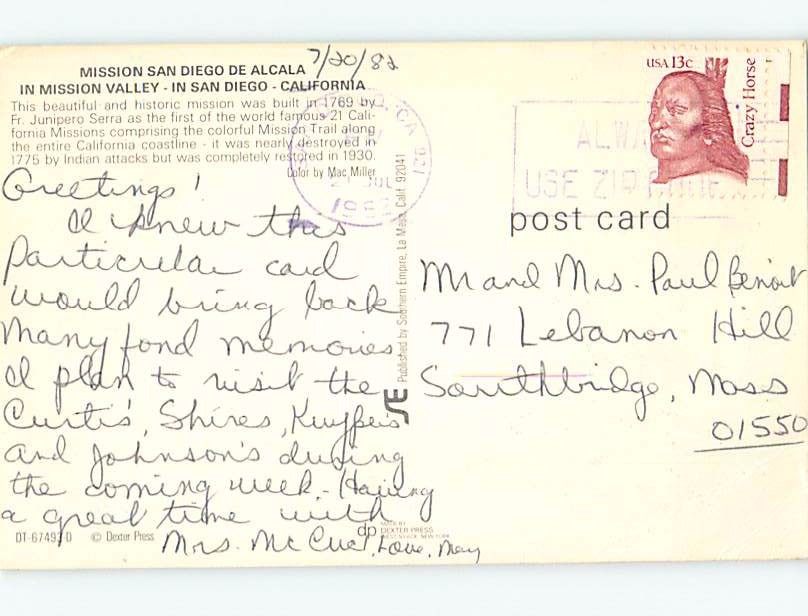 7/20/82
MISSION SAN DIEGO DE ALCALA
IN MISSION VALLEY - IN SAN DIEGO - CALIFORNIA
This beautiful and historic mission was built in 1769 by
Fr. Junipero Serra as the first of the world famous 21 Cali-
fornia Missions comprising the colorful Mission Trail along
the entire California coastline - it was nearly destroyed in
1775 by Indian attacks but was completely restored in 1930.
Color by Mac Miller
Greetings!
I knew this
particular card
would bring back
many fond memories
I plan to visit the
Curtis, Shires, Kuypers
and Johnson's during
the coming week. Having
a great time with
Mrs. McCue, Love, Mary
DT-67493-D © Dexter Press
Published by Southern Empire, La Mesa, Calif. 92041
SE
dp MADE BY
DEXTER PRESS
WEST NYACK, NEW YORK
USA 13c
Crazy Horse
CA 921
JUL
1982
USE ZIP CODE
post card
Mr and Mrs. Paul Benoit
771 Lebanon Hill
Southbridge, Mass
01550